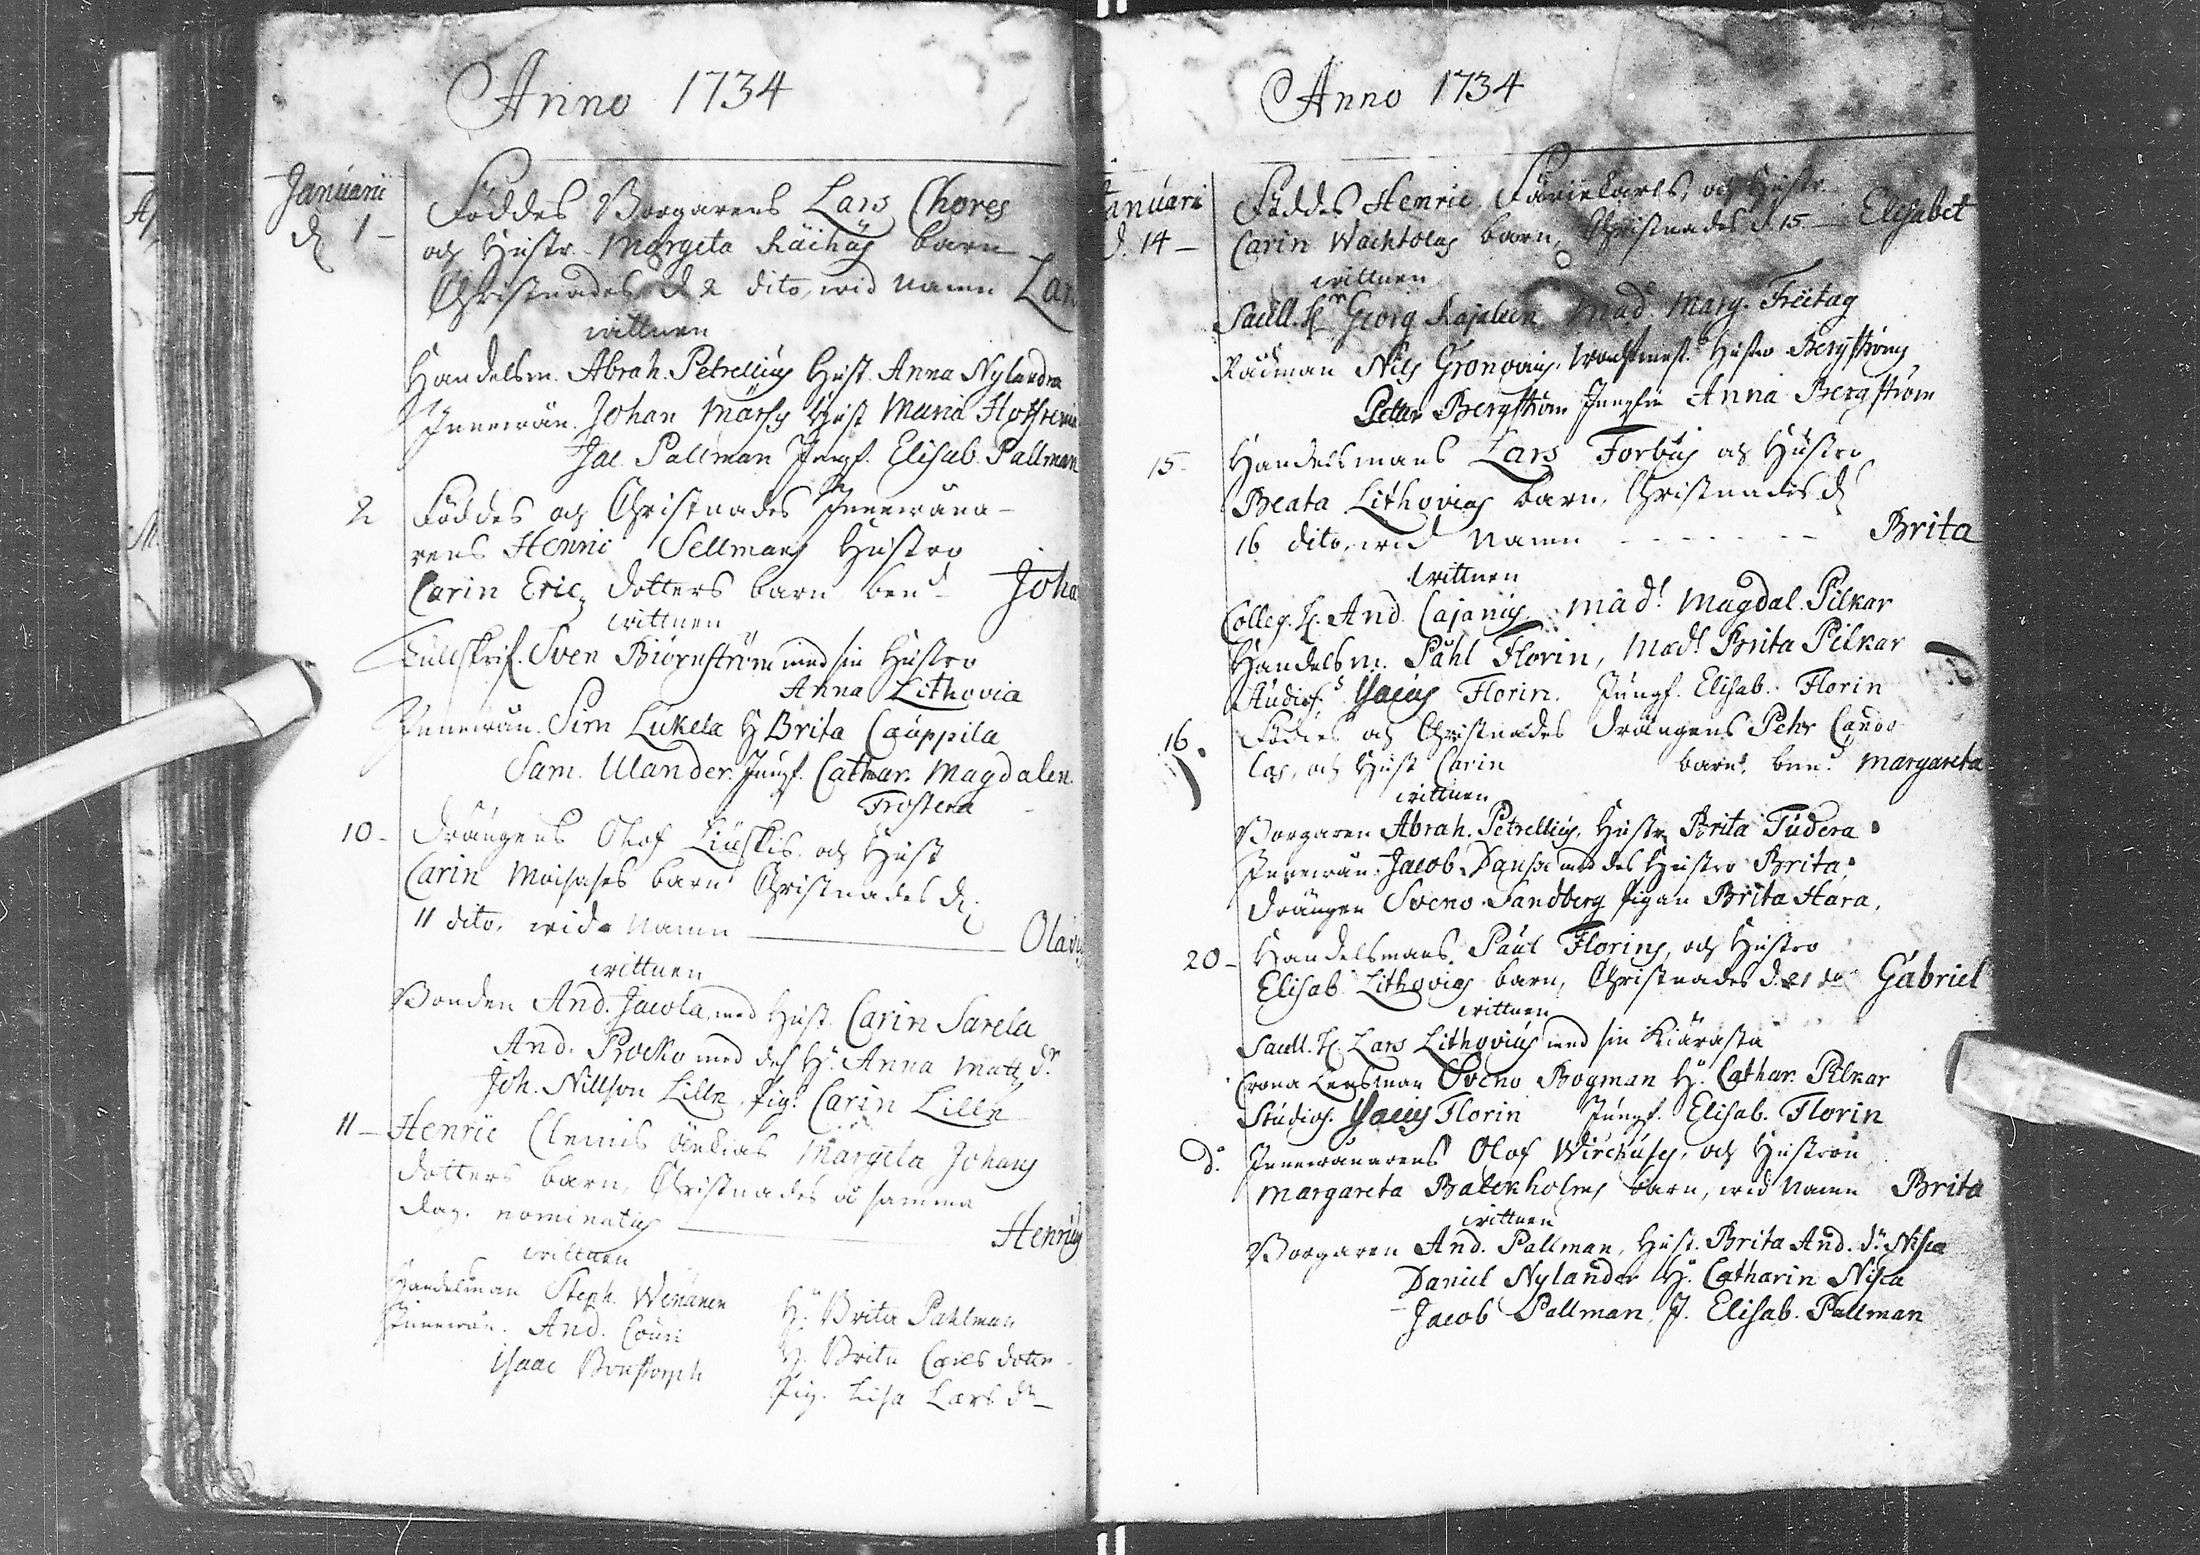 Anno 1734
Januarii
d. 1 - Föddes Borgarens Lars Chores
och Hustr. Margeta Räihäs barn
Christnades d. 2 dito, wid namn
wittnen
Handelsm. Abrah. Petrellius Hust. Anna Nylandra
Innewån. Johan Märsy Hust Maria
Jac. Pallman Jungf. Elisab. Pallman
2 Föddes och Christnades Innewåna-
rens Henric Sellmans Hustro
Carin Erics dotters barn ben.d Joha
wittnen
Tullskrif. Sven Biörnström med sin Hustro
Anna Lithovia
Innewån. Sim Lukela H Brita Cauppila
Sam. Ulander. Jungf. Cathar. Magdalen.
Frostera
10 - Drängens Olof Liuskis och Hust
Carin Moisases barn Christnades d.
11 dito, wid namn Olavus
wittnen
Bonden And. Jacola, med Hust. Carin Sarela
And. Procko med des H. Anna Matts dr
Joh. Nillson Lille, Pig. Carin Lille
11 - Henric Clemis Änkias Margeta Johans
dotters barn, Christnades å samma
dag. nominatus Henricus
wittnen
Handelsman Steph. Wänänen H. Brita Pahlman
Innewån. And. Couri H. Brita Carls dotter
Isaac Bonstorph Pig. Lisa Lars dr
Anno 1734
Januari
d. 14 - Föddes Henric och Hustr.
Carin Wachtolas barn, Christnades d 15 - Elisabet
wittnen
Sacell. H. Georg Kajaleen Mad. Marg. Freitag
Rådman Nils Gronovius, Hustro Bergströms
Petter Bergström Jungfru Anna Bergström
15 - Handelsmans Lars Forbus och Hustro
Beata Lithovius barn, Christnades d.
16 dito, wid namn - - - - - - - Brita
wittnen
Colleg. H. And. Cajanus, Mad. Magdal. Pilkar
Handelsm. Påhl Florin, Mad. Brita Pilkar
Studios. Isacus Florin. Jungf. Elisab. Florin
16. Föddes och Christnades Drängens Pehr Cando
las, och Hust Carin barn, ben.d Margareta
wittnen
Borgaren Abrah. Petrellius, Hustr. Brita Tudera
Innewån. Jacob Dansk med des Hustro Brita
Drängen Sveno Sandberg Pigan Brita Hara,
20 - Handelsmans Paul Florins, och Hustro
Elisab. Lithovias barn, Christnades d. 21 do Gabriel
wittnen
Sacell. H. Lars Lithovius med sin Kiärasta
Crona Lensman Sveno Bogman H. Cathar. Pilkar
Studios. Isacus Florin Jungf. Elisab. Florin
do Innewånarens Olof Wirckusis, och Hustrun
Margareta Balckholms barn, wid namn Brita
wittnen
Borgaren And. Pallman, Hust. Brita And. dr Nisca
Daniel Nylander H. Catharin Nisca
Jacob Pallman J. Elisab. Pallman